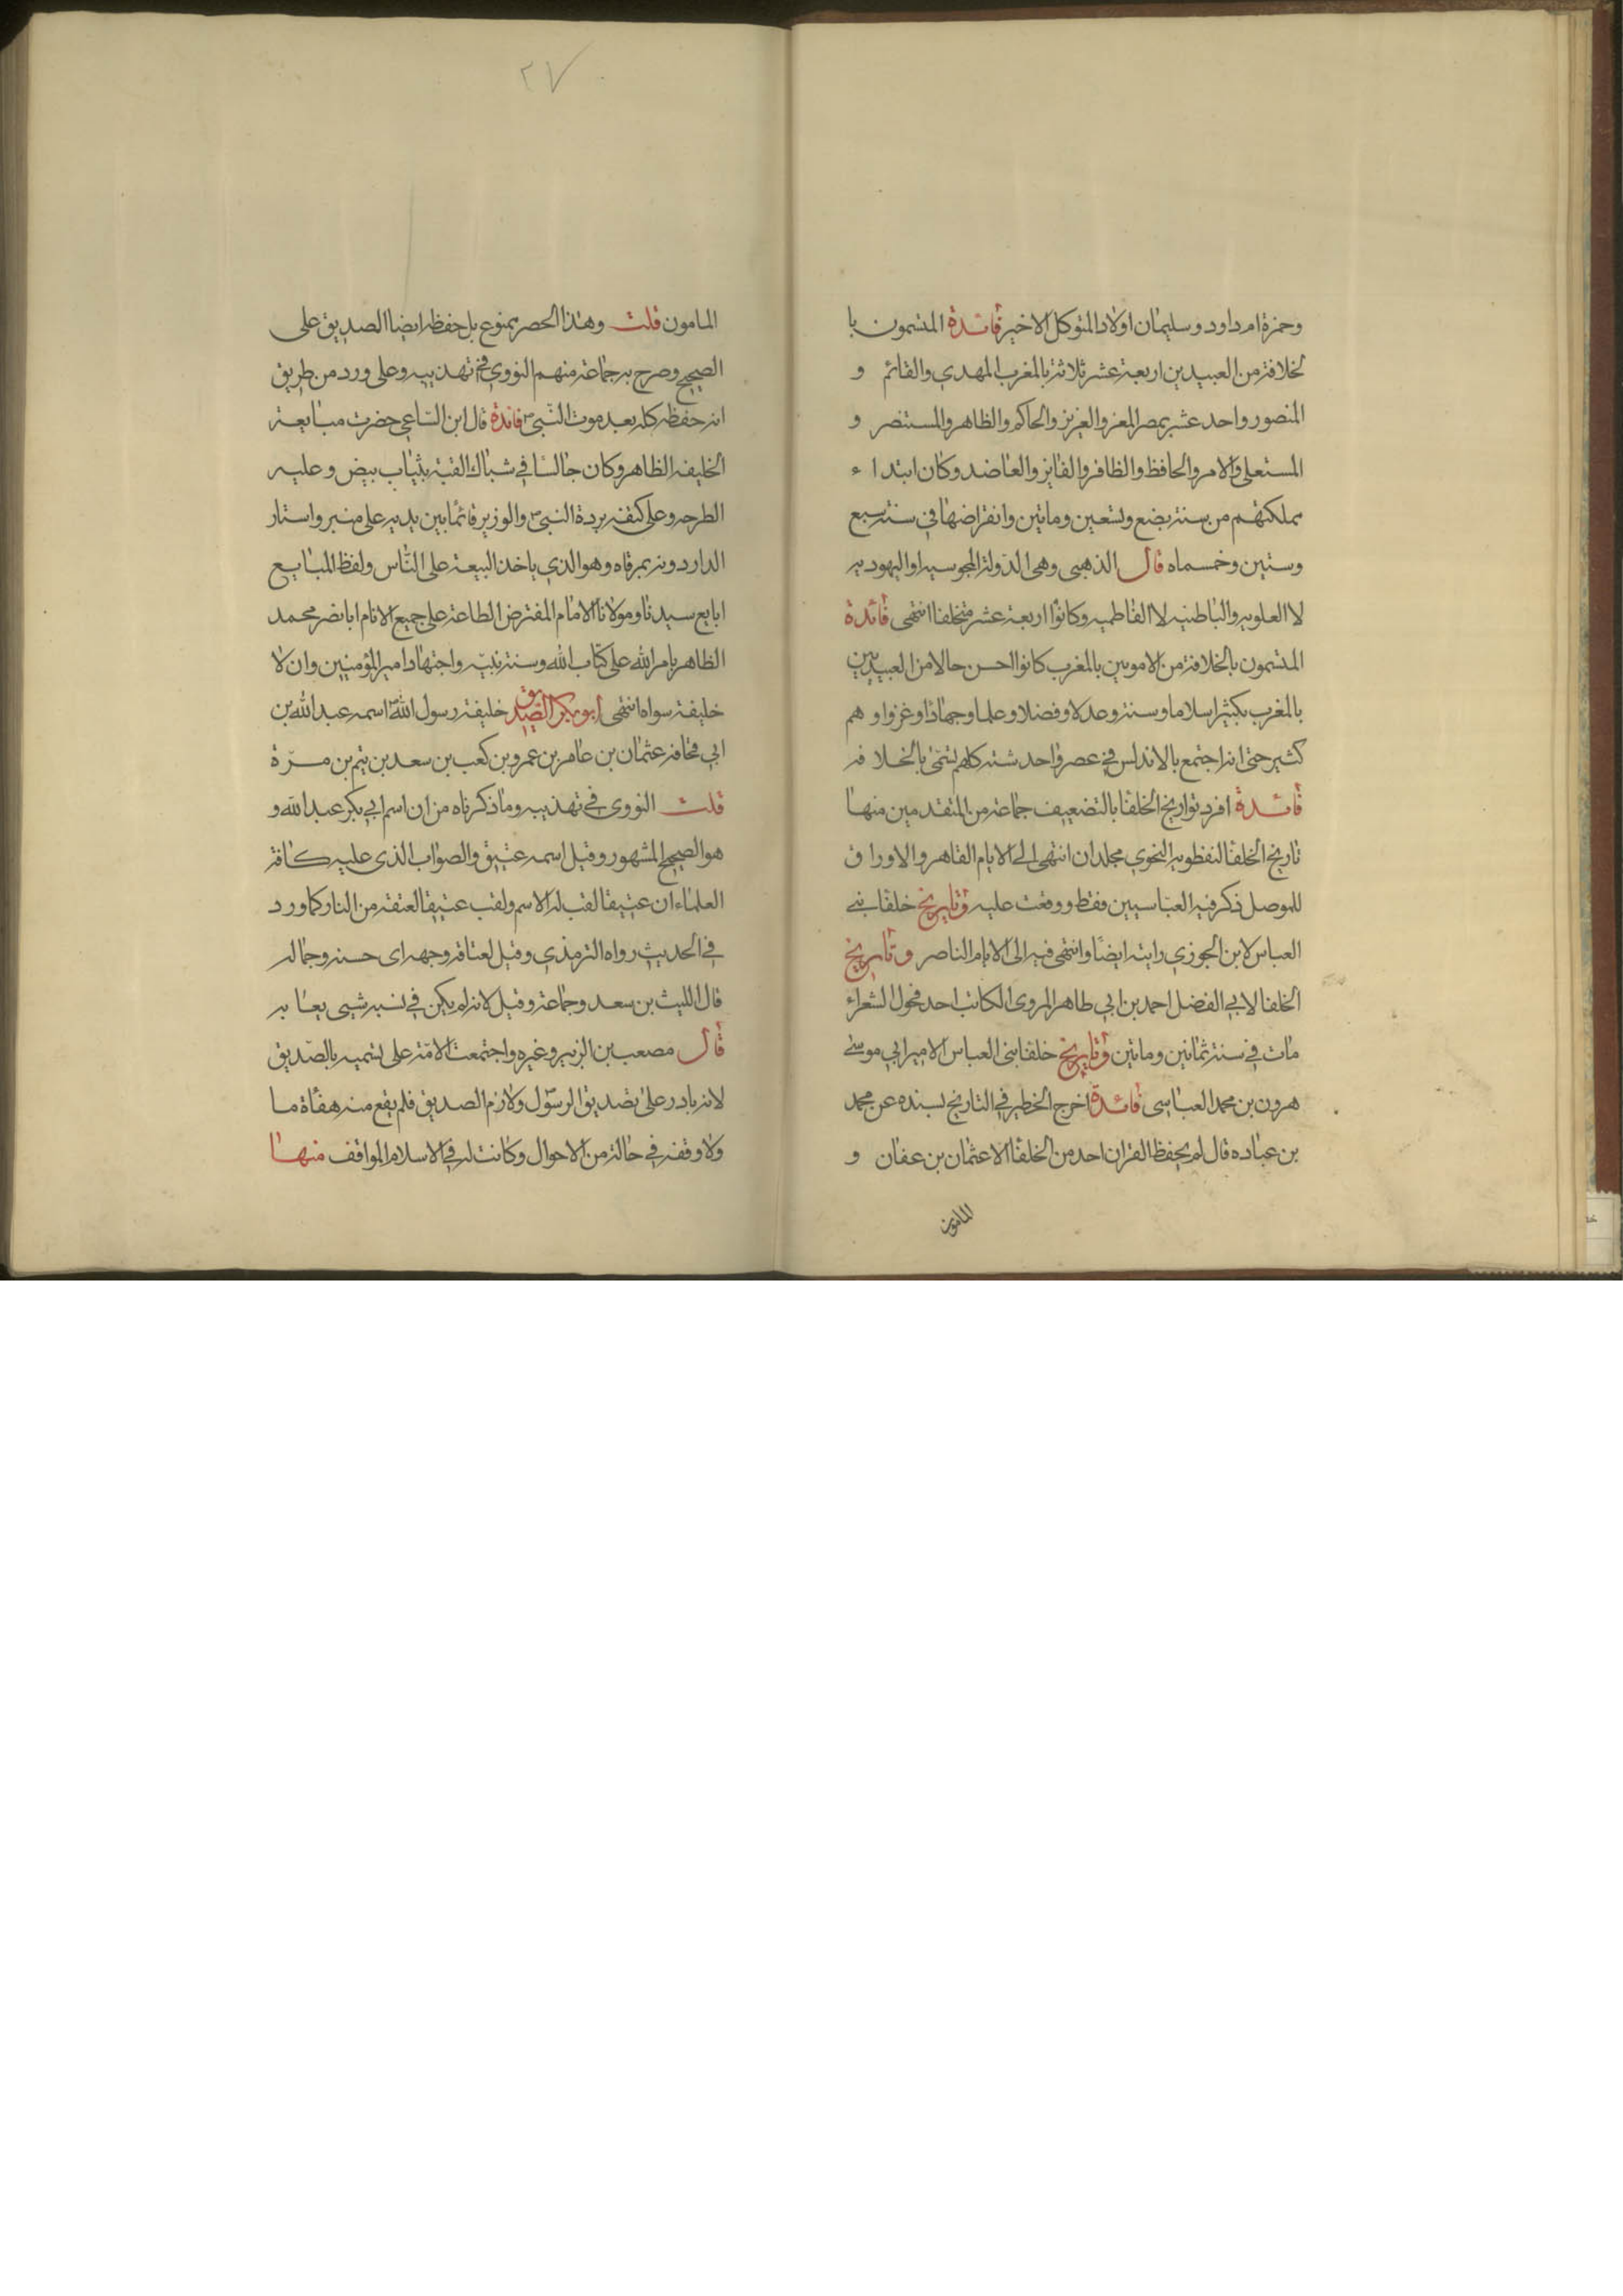 وحمزة ام داود وسليمان اولاد المتوكل الاخير فائدة المتسمون با
لخلافة من العبيديين اربعة عشر ثلاثة بالمغرب المهدي والقائم و
المنصور واحد عشر بمصر المعز والعزيز والحاكم والظاهر والمستنصر و
المستعلى والامر والحافظ والظافر والفايز والعاضد وكان ابتداء
مملكتهم من سنة بضع وتسعين وماتين وانقراضها في سنة سبع
وستين وخمسماه قال الذهبي وهي الدولة المجوسيه او اليهوديه
لا العلويه والباطنيه لا الفاطميه وكانوا اربعة عشر متخلفا انتهى فائدة
المتسمون بالخلافة من الامويين بالمغرب كانوا احسن حالا من العبيديين
بالمغرب بكثير اسلاما وسنة وعدلا وفضلا وعلما وجهادا وغزوا وهم
كثير حتى انه اجتمع بالاندلس في عصر واحد ستة كلهم تسمى بالخلافه
فائدة افرد تواريخ الخلفا بالتضعيف جماعة من المتقدمين منها
تاريخ الخلفا لنفظويه النحوي مجلدان انتهى الى الايام القاهر والاوراق
للموصل ذكر فيه العباسيين فقط ووقعت عليه وتاريخ خلفا بنى
العباس لابن الجوزي رايته ايضا وانتهى فيه الى الايام الناصر وتاريخ
الخلفا لابي الفضل احمد بن ابي طاهر المروى الكاتب احد فحول الشعراء
مات في سنة ثمانين وماتين وتاريخ خلفا بنى العباس الامير ابي موسى
هرون بن محمد العباسي فائدة اخرج الخطير في التاريخ بسنده عن محمد
بن عباده قال لم يحفظ القران احد من الخلفا الا عثمان بن عفان و
المامون
٢٧
المامون قلت وهذا الحصر ممنوع بل حفظه ايضا الصديق على
الصحيح وصرح به جماعة منهم النووي في تهذيبه وعلى ورد من طريق
انه حفظه كله بعد موت النبي فائدة قال ابن الساعي حضرت مبايعة
الخليفه الظاهر وكان جالسا في شباك القبة بثياب بيض وعليه
الطرحه وعلى كتفه بردة النبي والوزير قائما بين يديه على منبر واستار
الدار دونه بمرقاه وهو الذي ياخذ البيعة على الناس ولفظ المبايع
ابايع سيدنا ومولانا الامام المفترض الطاعة على جميع الانام ابا نصر محمد
الظاهر بامر الله على كتاب الله وسنة نبيه واجتهاد امير المؤمنين وان لا
خليفة سواه انتهى أبو بكر الصديق خليفة رسول الله اسمه عبد الله بن
ابي قحافه عثمان بن عامر بن عمرو بن كعب بن سعد بن تيم بن مرة
قلت النووى في تهذيبه وما ذكرناه من ان اسم ابي بكر عبد الله و
هو الصحيح المشهور وقيل اسمه عتيق والصواب الذي عليه كافة
العلماء ان عتيقا لقب له لا اسم ولقب عتيقا لعتقه من النار كما ورد
في الحديث رواه الترمذي وقيل لعتاقة وجهه اى حسنه وجماله
قال الليث بن سعد وجماعة وقيل لانه لم يكن في نسبه شيى يعاب به
قال مصعب بن الزبير وغيره واجتمعت الامة على تسميه بالصديق
لانه بادر على تصديق الرسول ولازم الصديق فلم يقع منه هفاة ما
ولا وقفه في حالة من الاحوال وكانت له في الاسلام المواقف منها